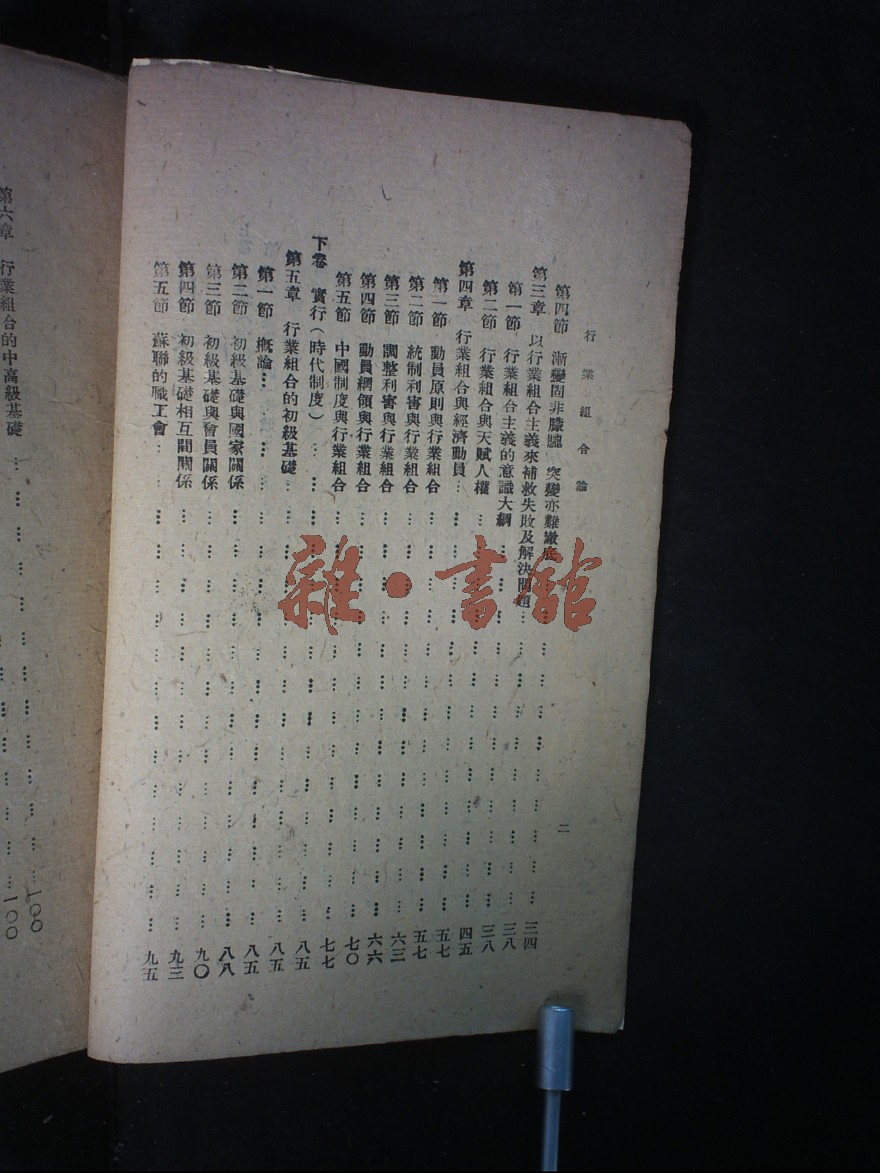 行業組合論
二
第四節 漸變固非朦朧 突變亦難徹底……三四
第三章 以行業組合主義來補救失敗及解決問題……三八
第一節 行業組合主義的意識大綱……三八
第二節 行業組合與天賦人權……四五
第四章 行業組合與經濟動員……五七
第一節 動員原則與行業組合……五七
第二節 統制利審與行業組合……六三
第三節 調整利審與行業組合……六六
第四節 動員綱領與行業組合……七〇
第五節 中國制度與行業組合……七七
下卷 實行(時代制度)……八五
第五章 行業組合的初級基礎……八五
第一節 概論……八五
第二節 初級基礎與國家關係……八八
第三節 初級基礎與會員關係……九〇
第四節 初級基礎相互間關係……九三
第五節 蘇聯的職工會……九五
第六章 行業組合的中高級基礎……一〇〇
……一〇〇
雜·書館